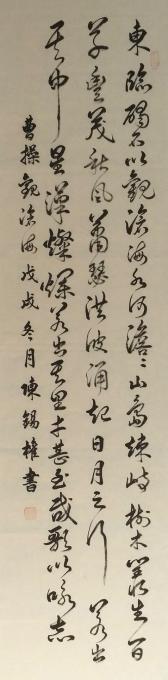 東臨碣石以觀滄海水何澹澹山島竦峙樹木叢生百
草豐茂秋風蕭瑟洪波涌起日月之行若出
其中星漢燦爛若出其里幸甚至哉歌以詠志
曹操觀滄海戊戌冬月陳錫權書